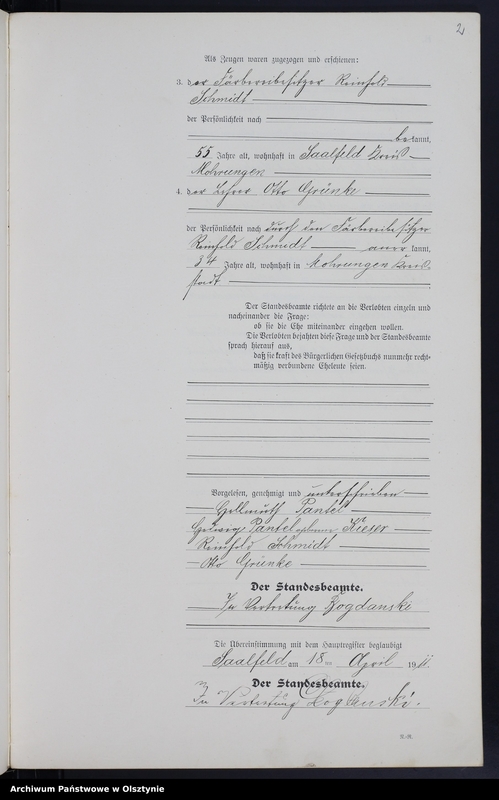 2
Als Zeugen waren zugezogen und erschienen:
3. der Färbereibesitzer Reinhold
Schmidt
der Persönlichkeit nach
bekannt,
55 Jahre alt, wohnhaft in Saalfeld Kreis
Mohrungen
4. der Lehrer Otto Grünke
der Persönlichkeit nach durch den Färbereibesitzer
Reinhold Schmidt anerkannt,
34 Jahre alt, wohnhaft in Mohrungen Kreis-
stadt
Der Standesbeamte richtete an die Verlobten einzeln und
nacheinander die Frage:
ob sie die Ehe miteinander eingehen wollen.
Die Verlobten bejahten diese Frage und der Standesbeamte
sprach hierauf aus,
daß sie kraft des Bürgerlichen Gesetzbuchs nunmehr recht-
mäßig verbundene Eheleute seien.
Vorgelesen, genehmigt und unterschrieben
Hellmuth Pantel
Hedwig Pantel geborene Kieser
Reinhold Schmidt
Otto Grünke
Der Standesbeamte.
In Vertretung Bogdanski
Die Übereinstimmung mit dem Hauptregister beglaubigt
Saalfeld am 18ten April 1911.
Der Standesbeamte.
In Vertretung Bogdanski.
Archiwum Państwowe w Olsztynie